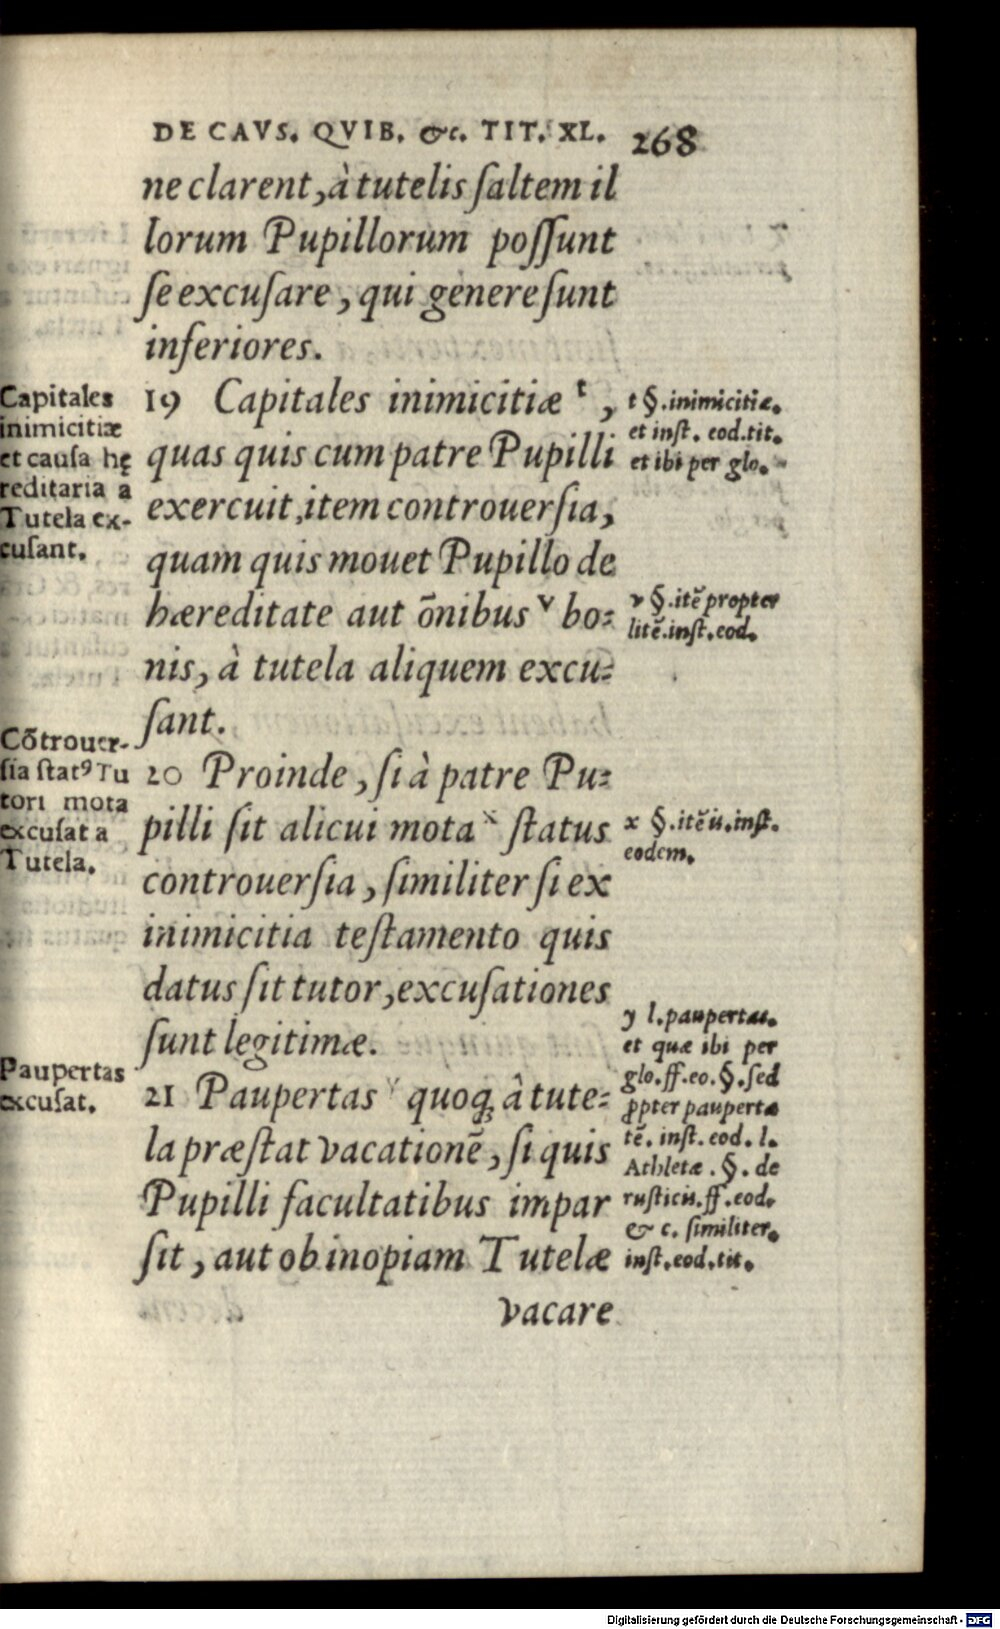 DE CAVS. QVIB. &c. TIT. XL. 268
ne clarent, à tutelis ſaltem il
lorum Pupillorum poſſunt
ſe excuſare, qui genere ſunt
inferiores.
19 Capitales inimicitiæ ᵗ,
quas quis cum patre Pupilli
exercuit, item controuerſia,
quam quis mouet Pupillo de
hæreditate aut õnibus ᵛ bo-
nis, à tutela aliquem excu-
ſant.
20 Proinde, ſi à patre Pu-
pilli ſit alicui mota ˣ ſtatus
controuerſia, ſimiliter ſi ex
inimicitia teſtamento quis
datus ſit tutor, excuſationes
ſunt legitimæ.
21 Paupertas ʸ quoq; à tute-
la præſtat vacationẽ, ſi quis
Pupilli facultatibus impar
ſit, aut ob inopiam Tutelæ
vacare
Capitales
inimicitiæ
et cauſa hę
reditaria a
Tutela ex-
cuſant.
Cõtrouer-
ſia ſtatꝰ Tu
tori mota
excuſat a
Tutela.
Paupertas
excuſat.
t §. inimicitiæ.
et inſt. eod. tit.
et ibi per glo.
v §. itẽ propter
litẽ. inſt. eod.
x §. itẽ ii. inſt.
eodem.
y l. paupertas.
et quæ ibi per
glo. ff. eo. §. ſed
ꝓpter pauperta
tẽ. inſt. eod. l.
Athletæ. §. de
ruſticis. ff. eod.
& c. ſimiliter.
inſt. eod. tit.
Digitalisierung gefördert durch die Deutsche Forschungsgemeinschaft - DFG